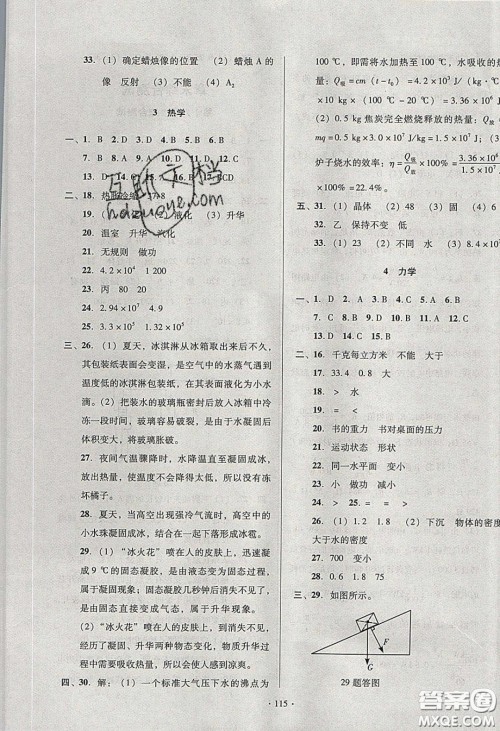 33. (1) 确定蜡烛像的位置 (2) 蜡烛 A 的
像 反射 (3) 不能 (4) A₂
3 热学
一、1. B 2. D 3. B 4. B 5. B 6. D
7. D 8. B 9. A 10. D 11. B 12. C
13.
二、18. 热胀冷缩
19. 液化 (3) 升华
20. 温室 升华 汽化
21. 无规则 做功
22. 4.2×10⁴ 1 200
23. 丙 80 20
24. 2.94×10⁷
25. 3.5×10⁷
三、26. (1) 夏天，冰淇淋从冰箱取出来后不久，
其包装纸表面会变湿，是空气中的水蒸气遇到
温度低的冰淇淋包装纸，在其表面液化为小水
滴。(2) 把装水的玻璃瓶密封后放入冰箱中冷
冻一段时间，玻璃容易破裂，是由于水凝固后
体积变大，将玻璃胀破。
27. 夜间气温骤降时，大桶里的水会凝固成冰，
放出热量，使温度不会降得太低，所以没有冻
坏橘子。
28. 夏天，当高空出现强冷气流时，高空中的
小水珠凝固成冰，结合在一起所以形成冰雹。
29. (1) “冰火花”喷在人的皮肤上，迅速凝
成 9 ℃的固态凝胶，是由液态变为固态过程，
属于凝固现象；固态凝胶几秒钟后消失不见，
由固态直接变成气态，属于升华现象。
(2) “冰火花”喷在人的皮肤上，到最后消失
经历了凝固、升华两种物态变化，物质升华过
程中需要吸热，所以人感觉到凉爽。
四、30. 解：(1) 一个标准大气压下水的沸点为
100 ℃，即需将水加热至 100 ℃，水吸收的热
量：Q吸=cm（t-t₀）=4.2×10³ J/
kg×（100 ℃-20 ℃）=3.36×10⁶
(2) 0.5 kg 焦炭完全燃烧释放的热量：
mq=0.5 kg×3.0×10⁷ J/kg=1.5×10⁷
炉子烧水的效率：η=Q吸/Q放×100%=3.36×10⁶/1.5×10⁷
×100%=22.4%。
五、31. (1) 晶体 (2) 48 (3) 固 (4)
32. 乙 保持不变 低
33. (1) 23 (2) 不同 水 (3)
4 力学
一、1. D 2. C 3. A 4. C 5. B 6.
7. C 8. B 9. A 10. C 11. D 12.
13. D 14. B 15. B
二、16. 千克每立方米 不能 大于
17. 33.4 0.8 大
18. > =
19. > <
20. 书的重力 书对桌面的压力
21. 运动状态 形状
22. 同一水平面 变小
23. 小 做功 减小
24. > 25. = = >
26. (1) 2 1.8 (2) 下沉 物体的密度
大于水的密度
27. 700 变小
28. 0.6 1.8 75
三、29. 如图所示。
F
G
29 题答图
· 115 ·
答案圈
MXQE.COM